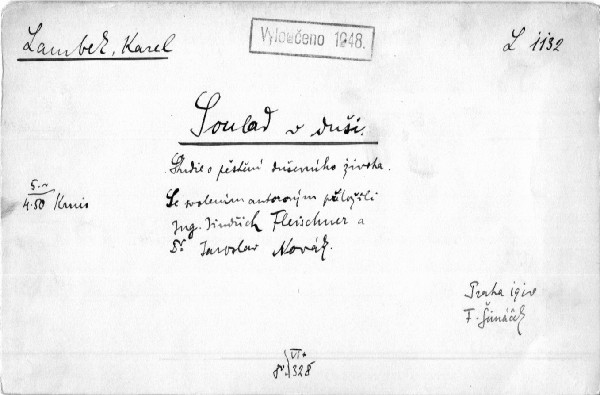 Lambek, Karel
Vyloučeno 1948.
L 1132
Soulad v duši.
Studie o pěstění duševního života.
5.-
4.50 Krnis
Se svolením autorovým přeložili
Ing. Jindřich Fleischner a
Dr Jaroslav Novák.
Praha
F. Šimáček
8° VI+
328